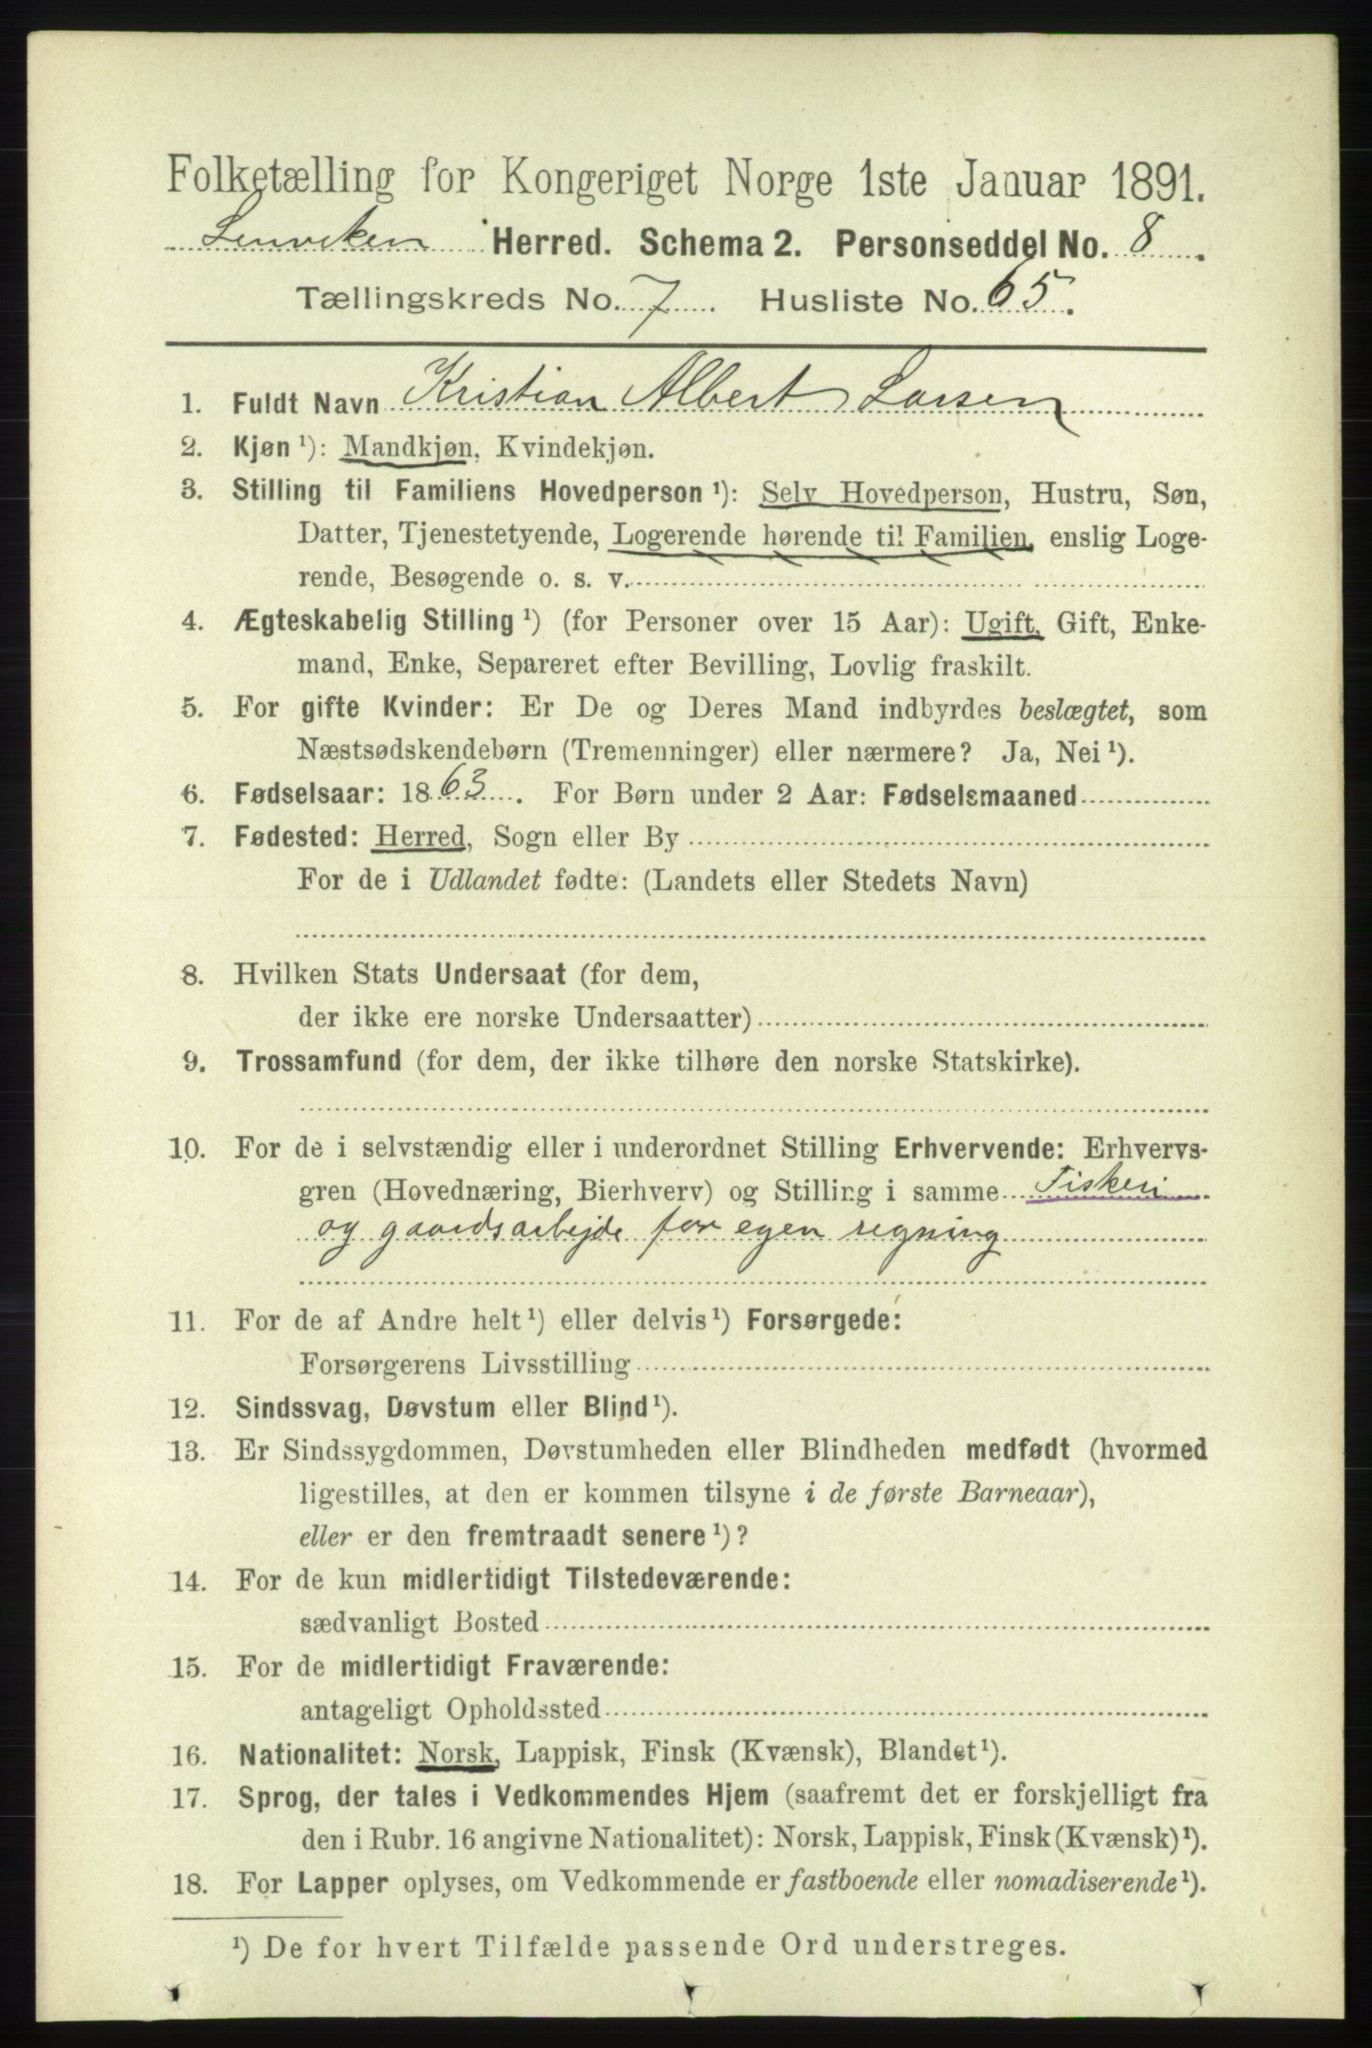 Folketælling for Kongeriget Norge 1ste Januar 1891.
Lenviken Herred. Schema 2. Personseddel No. 8.
Tællingskreds No. 7. Husliste No. 65.
1. Fuldt Navn Kristian Albert Larsen
2. Kjøn ¹): Mandkjøn, Kvindekjøn.
3. Stilling til Familiens Hovedperson ¹): Selv Hovedperson, Hustru, Søn,
Datter, Tjenestetyende, Logerende hørende til Familien, enslig Loge-
rende, Besøgende o. s. v.
4. Ægteskabelig Stilling ¹) (for Personer over 15 Aar): Ugift, Gift, Enke-
mand, Enke, Separeret efter Bevilling, Lovlig fraskilt.
5. For gifte Kvinder: Er De og Deres Mand indbyrdes beslægtet, som
Næstsødskendebørn (Tremenninger) eller nærmere? Ja, Nei ¹).
6. Fødselsaar: 1863. For Børn under 2 Aar: Fødselsmaaned
7. Fødested: Herred, Sogn eller By
For de i Udlandet fødte: (Landets eller Stedets Navn)
8. Hvilken Stats Undersaat (for dem,
der ikke ere norske Undersaatter)
9. Trossamfund (for dem, der ikke tilhøre den norske Statskirke).
10. For de i selvstændig eller i underordnet Stilling Erhvervende: Erhvervs-
gren (Hovednæring, Bierhverv) og Stilling i samme Fiskeri
og gaardsarbejde for egen regning
11. For de af Andre helt ¹) eller delvis ¹) Forsørgede:
Forsørgerens Livsstilling
12. Sindssvag, Døvstum eller Blind ¹).
13. Er Sindssygdommen, Døvstumheden eller Blindheden medfødt (hvormed
ligestilles, at den er kommen tilsyne i de første Barneaar),
eller er den fremtraadt senere ¹)?
14. For de kun midlertidigt Tilstedeværende:
sædvanligt Bosted
15. For de midlertidigt Fraværende:
antageligt Opholdssted
16. Nationalitet: Norsk, Lappisk, Finsk (Kvænsk), Blandet ¹).
17. Sprog, der tales i Vedkommendes Hjem (saafremt det er forskjelligt fra
den i Rubr. 16 angivne Nationalitet): Norsk, Lappisk, Finsk (Kvænsk) ¹).
18. For Lapper oplyses, om Vedkommende er fastboende eller nomadiserende ¹).
¹) De for hvert Tilfælde passende Ord understreges.